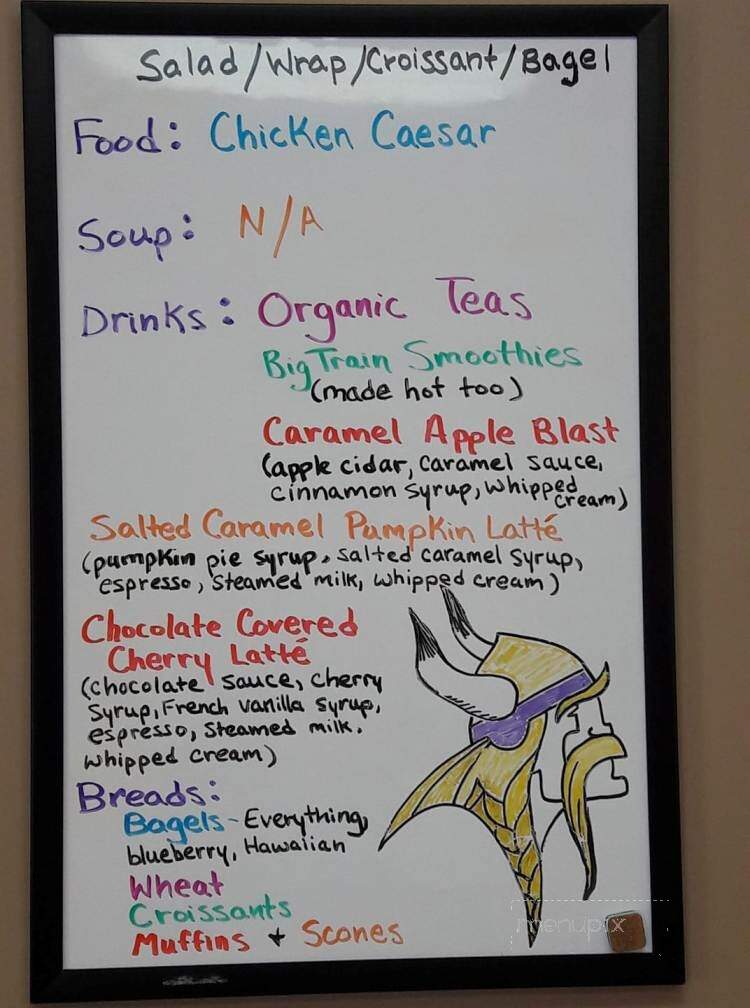 Salad/Wrap/Croissant/Bagel
Food: Chicken Caesar
Soup: N/A
Drinks: Organic Teas
Big Train Smoothies
(made hot too)
Caramel Apple Blast
(apple cidar, caramel sauce,
cinnamon syrup, whipped
cream)
Salted Caramel Pumpkin Latté
(pumpkin pie syrup, salted caramel syrup,
espresso, steamed milk, whipped cream)
Chocolate Covered
Cherry Latté
(chocolate sauce, cherry
syrup, French vanilla syrup,
espresso, steamed milk.
whipped cream)
Breads:
Bagels - Everything,
blueberry, Hawaiian
Wheat
Croissants
Muffins + Scones
menupix